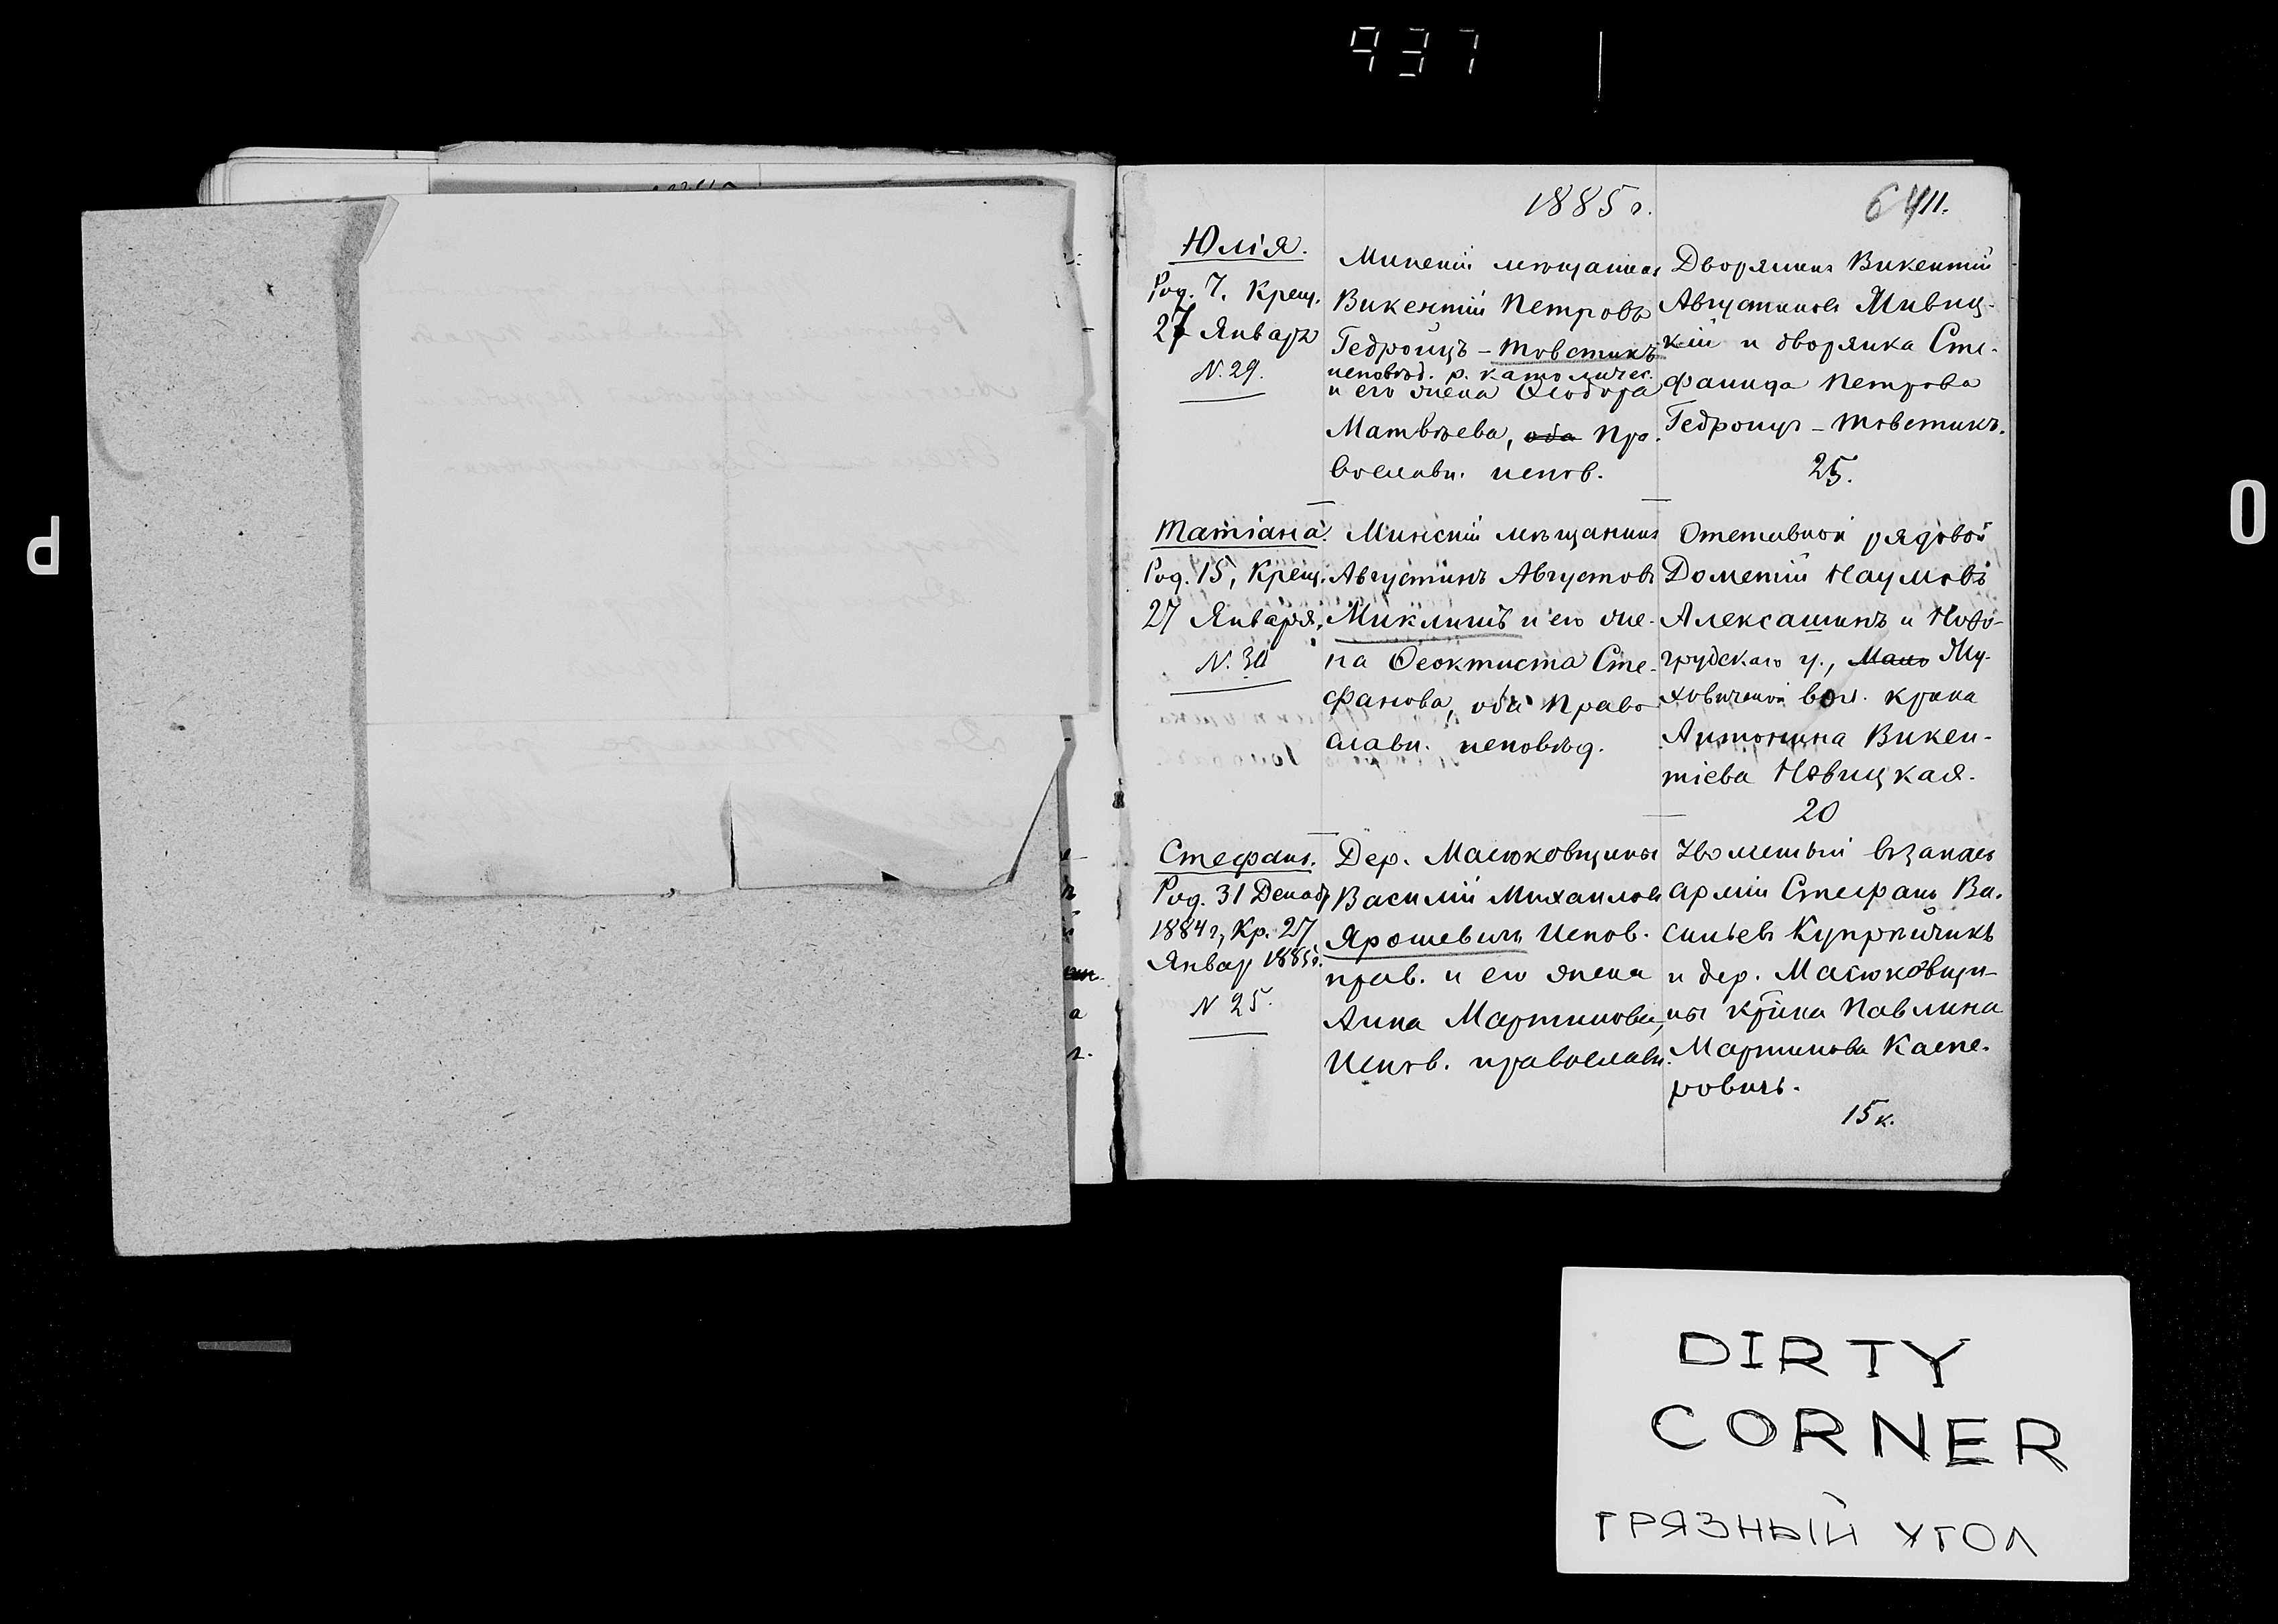 937
1885 г.
64 11.
Юлія.
Род. 7. Крещ.
27 Января
N. 29.
Минскій мѣщанинъ
Викентій Петровъ
Гедройцъ - Товстикъ
исповѣд. р. католичес.
и его жена Ѳеодора
Матвѣева, оба Пра-
вославн. испов.
Дворянинъ Викентій
Августиновъ
кій и дворянка Сте-
фанида Петрова
Гедройцъ - Товстикъ.
25.
Татіана.
Род. 15, Крещ.
27 Января.
N. 30
Минскій мѣщанинъ
Августинъ Августовъ
Миклишъ и его же-
на Ѳеоктиста Сте-
фанова, оба Право
славн. исповѣд.
Отставной рядовой
Дометій Наумовъ
Алексашинъ и Ново-
грудскаго у.,
вол. крпка
Антонина Викен-
тіева Новицкая.
20
Стефанъ.
Род. 31 Декаб.
1884 г, Кр. 27
Январ 1885 г.
N 25.
Дер. Масюковщины
Василій Михаиловъ
Ярошевичъ Испов.
прав. и его жена
Анна Мартинова,
Испов. православн.
Уволенный въ запасъ
арміи Стефанъ Ва-
сильевъ Купрейчикъ
и дер. Масюковщи-
ны крпка Павлина
Мартинова Каспе-
ровичъ.
15 к.
P
O
DIRTY
CORNER
ГРЯЗНЫЙ УГОЛ